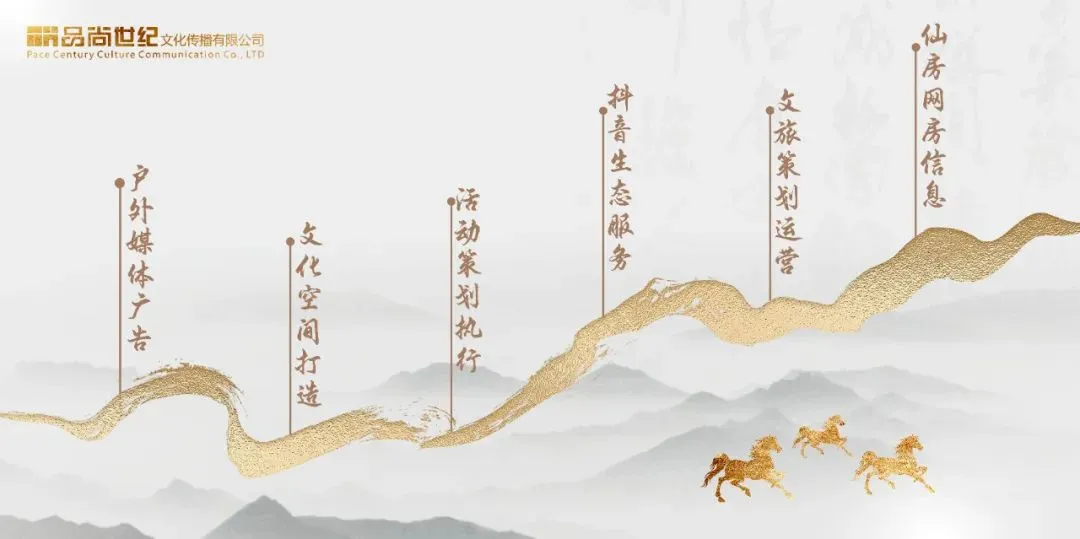 品尚世纪文化传播有限公司
Pace Century Culture Communication Co., LTD
户外媒体广告
文化空间打造
活动策划执行
抖音生态服务
文旅策划运营
仙房网房信息